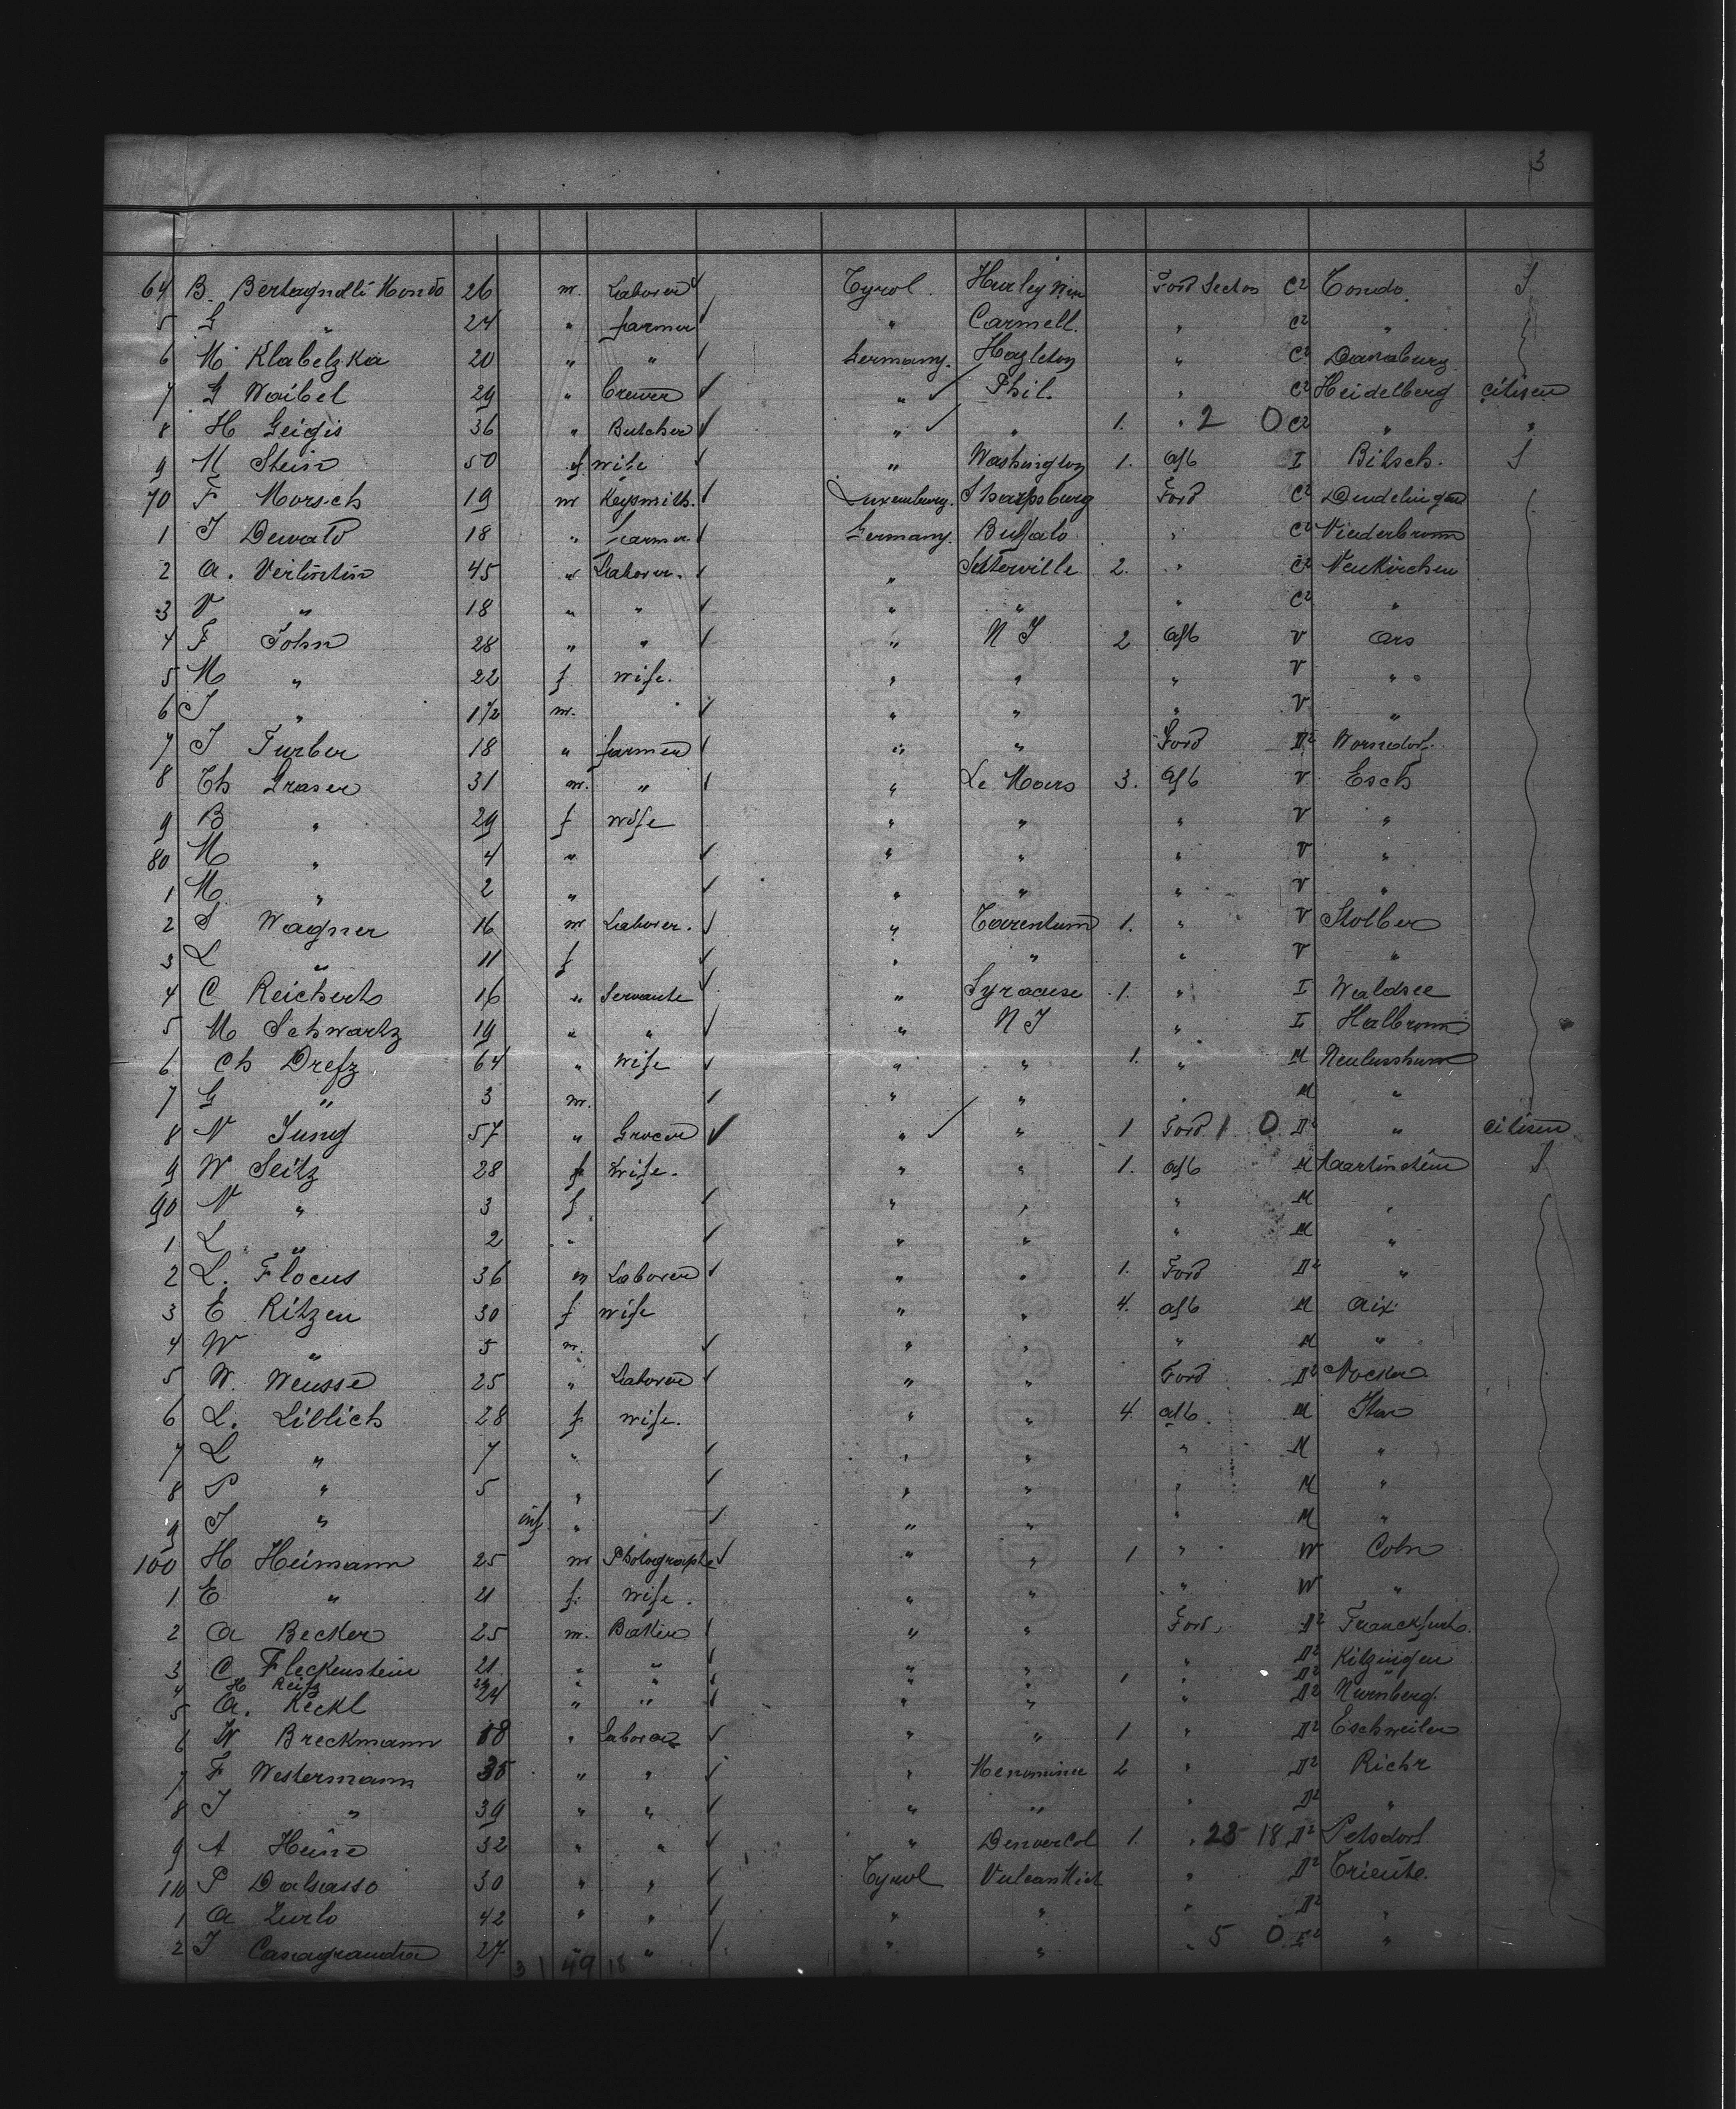 3
64 B. Bertagnolli Mondo 26 m. Laborer Tyrol. Hurley Ford Sector C2 Condo.
5 G " 24 " farmer " Carmell. " C2 "
6 M. Klabelzka 20 " " Germany. Hazleton " C2
7 G Waibel 29 " Brewer " Phil. " C2 Heidelberg citisen
8 H Geigis 36 " Butcher " " 1. " 2 0 C2 " "
9 M Stein 50 f wife " Washington 1. Aft I Bitsch.
70 F Morsch 19 m Keysmith. Luxemburg. Sharpsburg Ford C2 Dudelingen
1 J Dewald 18 " Farmer. Germany. Buffalo " C2 Niederbronn
2 A. Verlintin 45 " Laborer. " Suterville 2. " C2 Neukirchen
3 V " 18 " " " " " C2 "
4 F John 28 " " " N J 2 Aft V Ars
5 M " 22 f wife. " " " V "
6 J " 1½ m. " " " V "
7 J Furber 18 " farmer " " Ford D2
8 Th Graser 31 m. " " Le Mars 3. Aft V Esch
9 B " 29 f wife " " " V "
80 M " 4 " " " " V "
1 M " 2 " " " " V "
2 S Wagner 16 m Laborer. " Tarentum 1. " V Stolber
3 L " 11 f " " " V "
4 C Reichert 16 " Servante " Syracuse 1. " I Waldsee
5 M Schwartz 19 " " " N J " I Halbronn
6 Ch Drefz 64 " Wife " " 1. " M
7 G " 3 m. " " " M "
8 N Jung 57 " Grocer " " 1 Ford 1 0 D2 " citisen
9 W Seitz 28 f Wife. " " 1. Aft M Martinstein
90 N " 3 f " " " M "
1 L " 2 " " " " M "
2 L. Flocus 36 m Laborer " " 1. Ford D2 "
3 E Ritzen 30 f wife " " 4. Aft M Aix
4 W " 5 m. " " " M "
5 W. Weusse 25 " Laborer " " Ford D2 Nocker
6 L. Liblich 28 f wife. " " 4. Aft. M
7 L " 7 " " " " M "
8 P " 5 " " " " M "
9 J " inf. " " " " M "
100 H Heimann 25 m Photograph " " 1 " W Coln
1 E " 21 f. Wife. " " " W "
2 A Becker 25 m. Baker " " Ford. D2 Franckfurt.
3 C Fleckenstein 21 " " " " " D2 Kitzingen
4 H Reitz 29 " " " " 1 " D2 "
5 A. Keckl 24 " " " " " D2 Nurnberg.
6 W Breckmann 18 " Laborer " " 1 " D2 Eschweiler
7 F Westermann 35 " " " Menominee 2 " D2 Richr
8 J " 39 " " " " " D2 "
9 A Heine 32 " " " Denver Col 1. " 23 18 D2 Petsdorf
110 P Dalsasso 30 " " Tyrol Vulcan Mich " D2 Triente.
1 A Zurlo 42 " " " " " D2 "
2 J Casagrandra 27 " " " " " 5 0 "
3 1 49 18